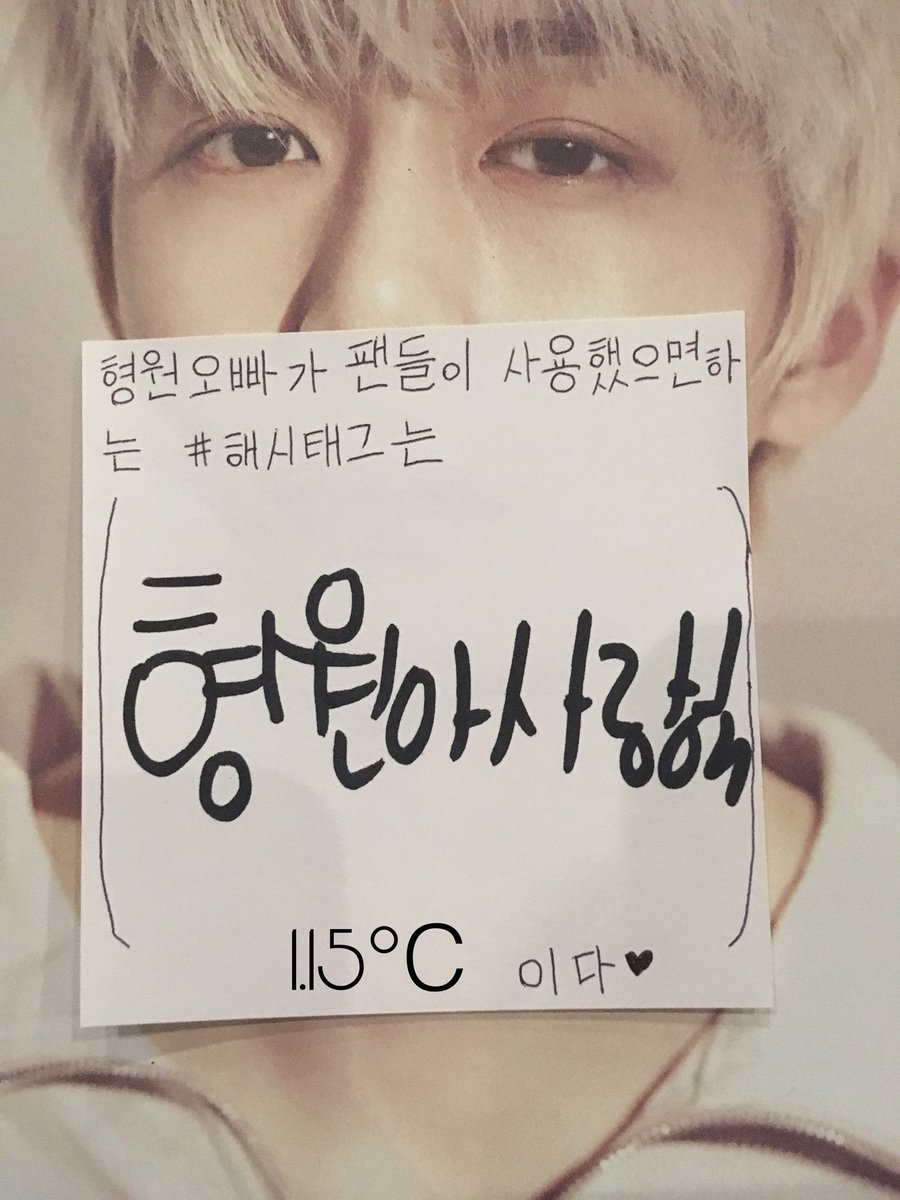 형원오빠가 팬들이 사용했으면하
는 #해시태그는
(형원아사랑해)
1.15°C
이다♥